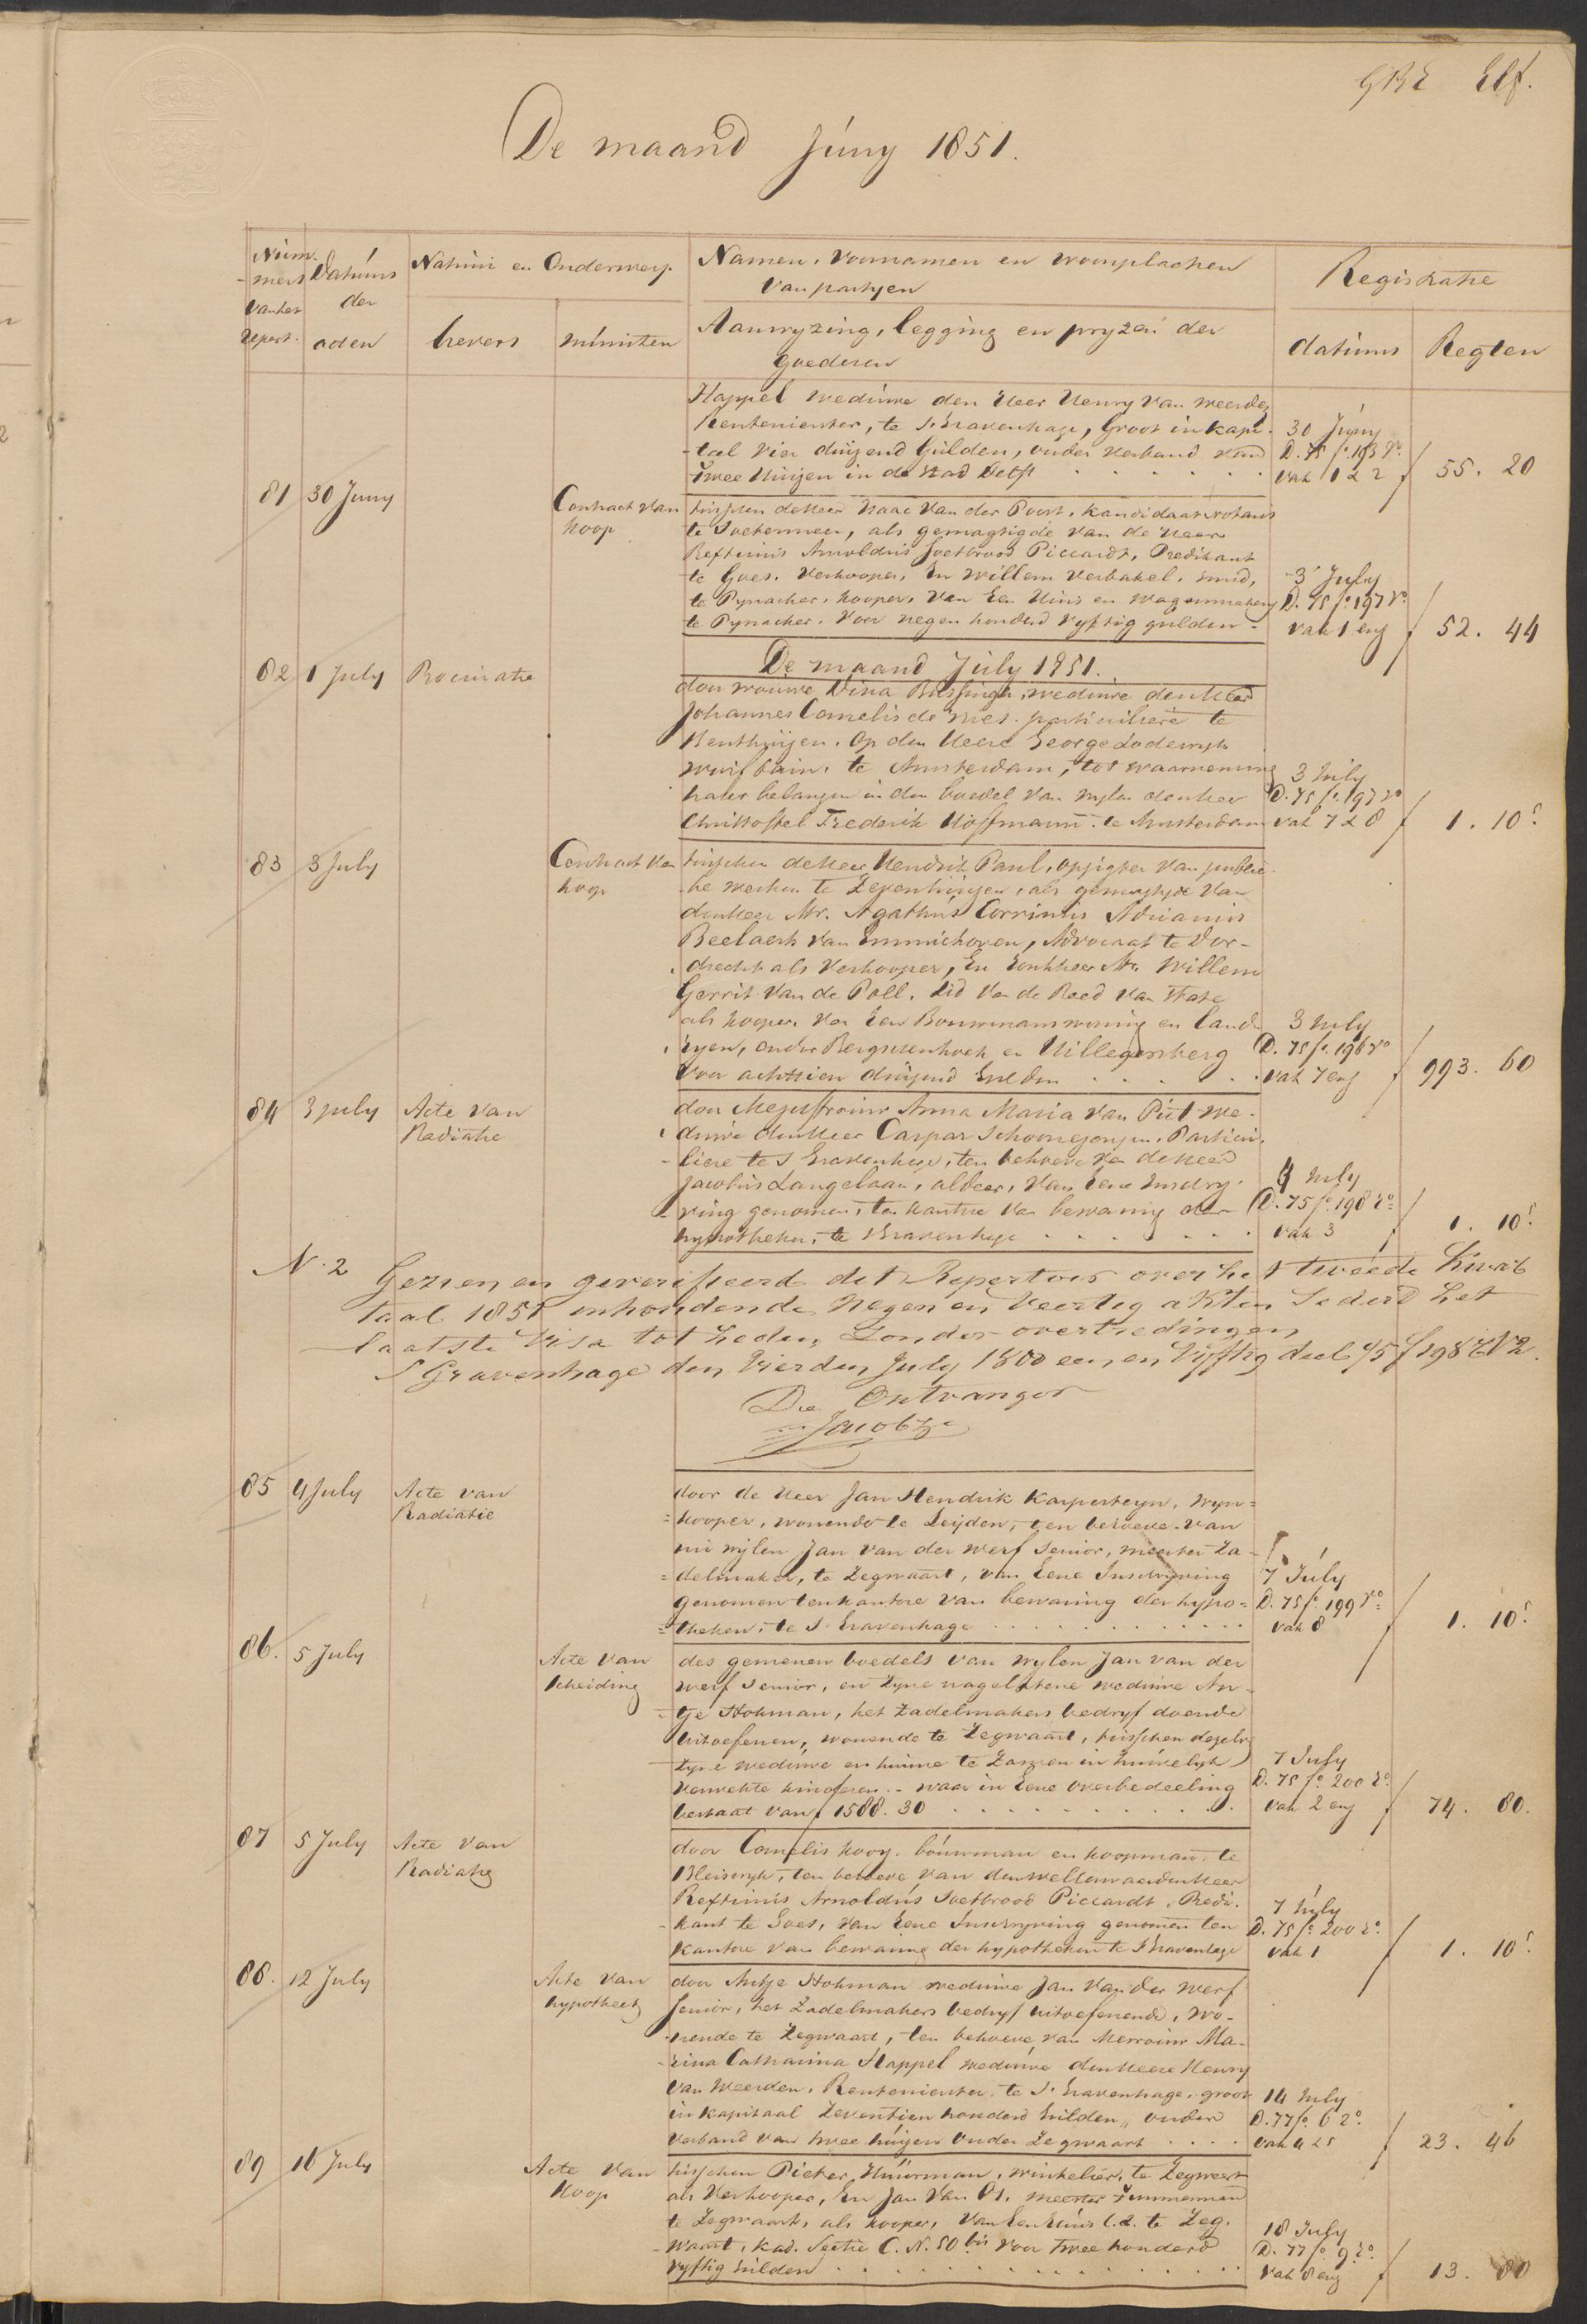 Elf.
De maand Júny 1851.
Núm-
mers
van het
repert.
Datúms
der
acten
Natúúr en Onderwerp
brevets
minúten
Namen, voornamen en woonplaatsen
van partyen
Aanwyzing, legging en pryzen der
goederen
Registratie
datúms
Regten
Happel weduwe den Heer Henry van Weerden
Rentenierster, te 's Gravenhage, Groot in kapi-
taal vier duizend Gúlden, onder verband van
twee Húizen in de stad Delft
30 Júny
D. 75 fo. 193 ro
vak 1 & 2
f 55. 20
81 30 Juny
Contract van
koop
tusschen de Heer Isaac van der Poort, kandidaat notaris
te Soetermeer, als gemagtigde van de Heer
Reftinús Arnoldús Soetbrood Piccardt, Predikant
te Goes, Verkooper, En Willem Verbakel, smid,
te Pynacker, kooper, van Een Húis en wagenmakery
te Pynacker, voor negen honderd vyftig gulden
3 July
D. 75 fo 197 ro
vak 1 en
f 52. 44
De maand Júly 1851.
82 1 July Procuratie
door vrouwe Dina weduwe den Heer
Johannes Cornelis de Vries, particuliere te
Benthúizen, Op den Heere George Lodewyk
te Amsterdam, tot waarneming
harer belangen in den boedel van wylen den Heer
Christoffel Frederik Hoffmann te Amsterdam
3 Júly
D. 75 fo. 197 ro
vak 7 & 8
f 1. 10 5
83 3 July
Contract van
koop
tusschen de Heer Hendrik Paul, opzigter van publie-
ke werken te Zevenhuizen, als gemagtigde van
den Heer Mr. Agathús Corrinús Adrianús
Beelaerts van Emmichoven, Advocaat te Dor-
drecht als Verkooper, En Jonkheer Mr. Willem
Gerrit van de Poll, Lid van de Raad van State
als kooper, van Een Bouwmanswoning en lande-
ryen, onder Bergschenhoek en Hillegersberg
voor achttien duizend Gulden
3 July
D. 75 fo. 196 ro
vak 7 en
f 993. 60
84 3 July Acte van
Radiatie
door Mejufvrouw Anna Maria van Piet we-
duwe den Heer Caspar Schoonejongen, Particu-
liere te 's Gravenhage, ten behoeve van de Heer
Jacobús Langelaan, aldaar, van Eene Inschry-
ving genomen, ten kantore van bewaring der
hypotheken, te 's Gravenhage
4 July
D. 75 fo 198 ro
vak 3
f 1. 10 5
N. 2 Gezien en geverifieerd dit Repertoir over het tweede Kwar-
taal 1851 inhoudende Negen en veertig akten sederd het
laatste Visa tot heden, zonder overtredingen
's Gravenhage den Vierden July 1800 een en Vyftig deel 75 f 198
De Ontvanger
85 4 July Acte van
Radiatie
door de Heer Jan Hendrik Karpesteyn, wyn-
kooper, wonende te Leijden, ten behoeve van
nu wijlen Jan van der Werf senior, meester Za-
delmaker, te Zegwaart, van Eene Inschryving
genomen ten kantore van bewaring der hypo-
theken, te 's Gravenhage
7 July
D. 75 fo 199 ro
vak 8
f 1. 10 5
86. 5 July
Acte van
scheiding
des gemenen boedels van wylen Jan van der
Werf senior, en zyne nagelatene weduwe An-
tje Hohman, het Zadelmakers bedryf doende
uitoefenen, wonende te Zegwaart, tusschen dezelve
zyne weduwe en hunne te zamen in huwelyk
verwekte kinderen - waar in Eene overbedeeling
bestaat van f 1588. 30
7 July
D. 75 fo 200 ro
vak 2 en
f 74. 80.
87 5 July Acte van
Radiatie
door Cornelis Kooy, bouwman en koopman, te
Bleiswyk, ten behoeve van den weleerwaarden Heer
Reftinús Arnoldús Soetbrood Piccardt, Predi-
kant te Goes, van Eene Inschryving genomen ten
kantore van bewaring der hypotheken te 's Gravenhage
7 July
D. 75 fo 200 ro
vak 1
f 1. 10 5
88. 12 July
Acte van
hypotheek
door Antje Hohman weduwe Jan van der Werf
senior, het Zadelmakers bedryf uitoefenende, wo-
nende te Zegwaart, ten behoeve van Mevrouw Ma-
rina Catharina Happel weduwe den Heere Henry
van Weerden, Rentenierster, te 's Gravenhage, groot
in kapitaal Zeventien honderd Gúlden, onder
verband van twee húizen onder Zegwaart
14 July
D. 77 fo. 6 ro
vak 4 & 5
f 23. 46
89 16 July
Acte van
koop
tusschen Pieter Húúrman, winkelier, te Zegwaart
als Verkooper, En Jan van Os, meester timmerman
te Zegwaart, als kooper, van Een Húis te Zeg-
waart, kad. Sectie C. N. 50 bis voor twee honderd
vyftig Gúlden
18 July
D. 77 fo 9 ro
vak 8 en
f 13. 80